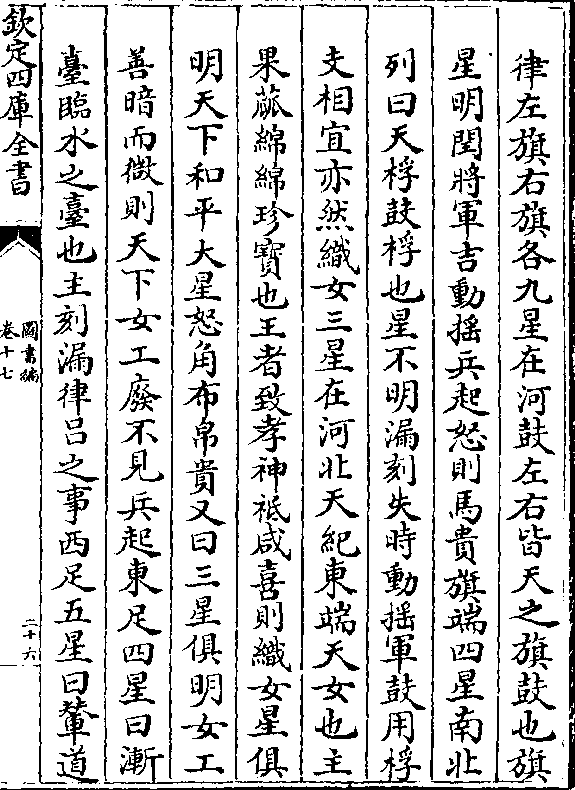 律左旗右旗各九星在河鼓左右皆天之旗鼓也旗
星明閏將軍吉動揺兵起怒則馬貴旗端四星南北
列曰天桴鼓桴也星不明漏刻失時動揺軍鼓用桴
支相宜亦然織女三星在河北天紀東端天女也主
果蓏綿綿珍寳也王者致孝神祗咸喜則織女星俱
明天下和平大星怒角布帛貴又曰三星俱明女工
善暗而微則天下女工廢不見兵起東足四星曰漸
臺臨水之臺也主刻漏律吕之事西足五星曰輦道
欽定四庫全書
圖書編
卷十七
二十六